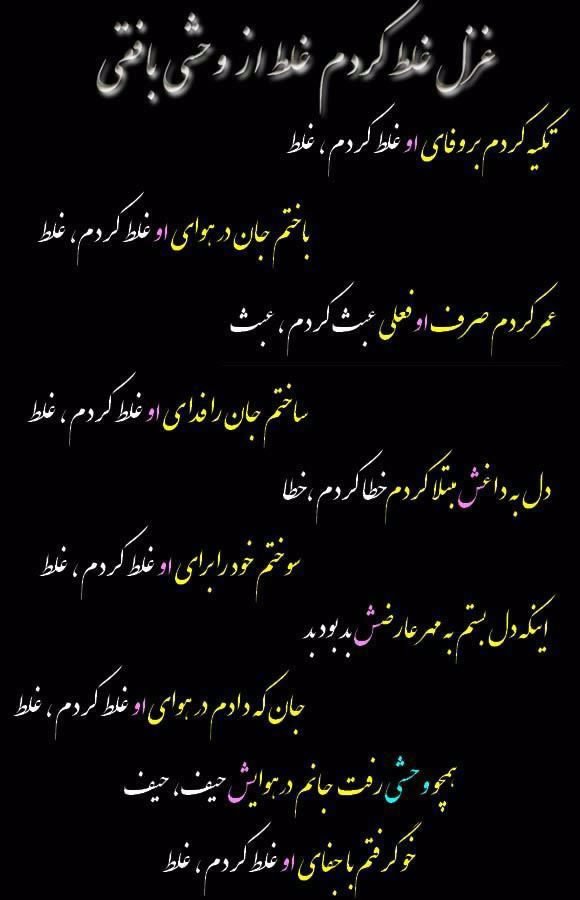 غزل غلط کردم غلط از وحشی بافقی
تکیه کردم بر وفای او غلط کردم ، غلط
باختم جان در هوای او غلط کردم ، غلط
عمر کردم صرف او فعلی عبث کردم ، عبث
ساختم جان را فدای او غلط کردم ، غلط
دل به داغش مبتلا کردم خطا کردم ،خطا
سوختم خود را برای او غلط کردم ، غلط
اینکه دل بستم به مهر عارضش بد بود بد
جان که دادم در هوای او غلط کردم ، غلط
همچو وحشی رفت جانم در هوایش حیف، حیف
خو گرفتم با جفای او غلط کردم ، غلط